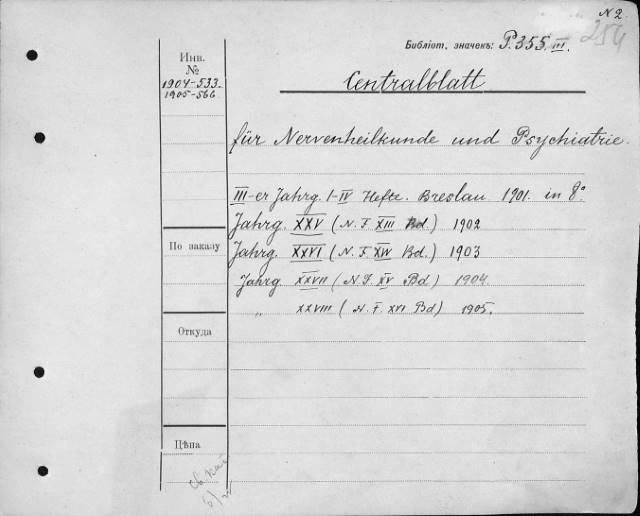 N 2.
254
Библіот. значекъ: P.355 III.
Инв.
№
1904-533.
1905-566
Centralblatt
für Nervenheilkunde und Psychiatrie.
III-er Jahrg. I-IV Hefte. Breslau. 1901. in 8°
Jahrg. XXV (N. F. XIII Bd.) 1902
По заказу
Jahrg. XXVI (N. F. XIV Bd.) 1903
Jahrg XXVII (N. F. XV Bd) 1904.
„ XXVIII (N. F. XVI Bd) 1905.
Откуда
Цѣна